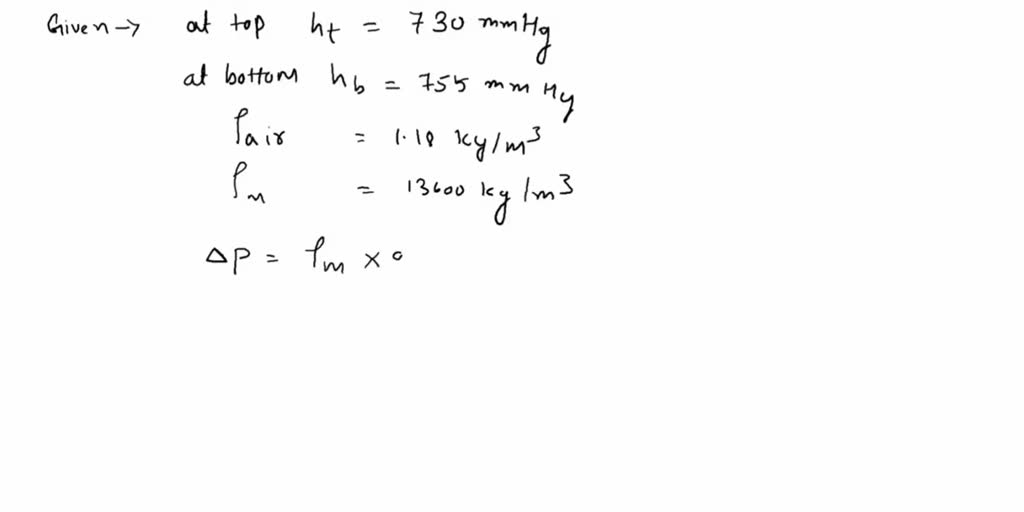 Given → at top ht = 730 mmHg
at bottom hb = 755 mm Hg
ρair = 1.18 kg/m³
ρm = 13600 kg/m³
ΔP = ρm ×